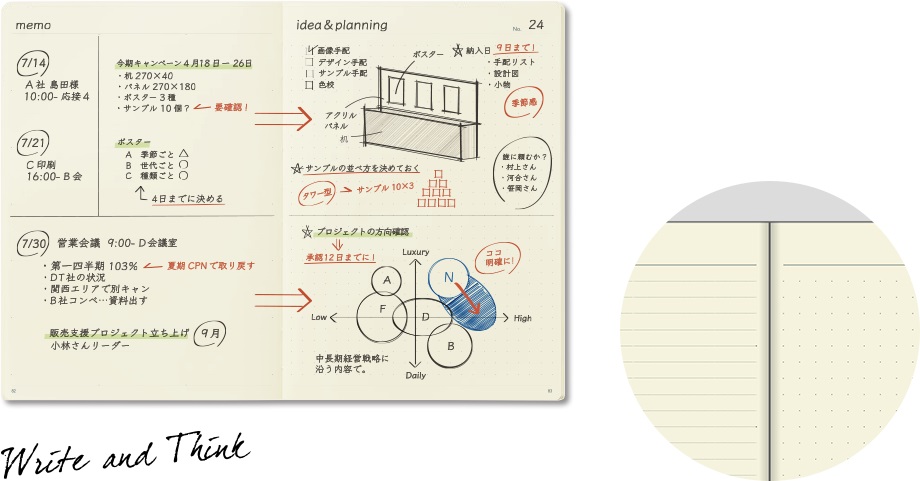 memo
7/14
A社 島田様
10:00- 応接4
今期キャンペーン4月18日ー26日
・机 270×40
・パネル 270×180
・ポスター3種
・サンプル10個? ← 要確認!
7/21
C印刷
16:00- B会
ポスター
A 季節ごと △
B 世代ごと ○
C 種類ごと ○
4日までに決める
7/30 営業会議 9:00- D会議室
・第一四半期 103% ← 夏期CPNで取り戻す
・DT社の状況
・関西エリアで別キャン
・B社コンペ…資料出す
販売支援プロジェクト立ち上げ 9月
小林さんリーダー
idea & planning
No. 24
画像手配
デザイン手配
サンプル手配
色校
ポスター
アクリル
パネル
机
☆納入日 9日まで!
・手配リスト
・設計図
・小物
季節感
☆サンプルの並べ方を決めておく
タワー型 → サンプル10×3
誰に頼むか?
・村上さん
・河合さん
・菅岡さん
☆プロジェクトの方向確認
承認12日までに!
Luxury
ココ
明確に!
A
N
F
D
Low
High
B
Daily
中長期経営戦略に
沿う内容で。
Write and Think